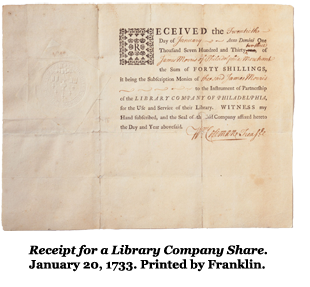 RECEIVED the Twentieth
Day of January Anno Domini One
Thousand Seven Hundred and Thirty
of James Morris of Philadelphia Merchant
the Sum of FORTY SHILLINGS,
It being the Subscription Monies of the said James Morris
to the Instrument of Partnership
of the LIBRARY COMPANY OF PHILADELPHIA,
for the Use and Service of their Library. WITNESS my
Hand subscribed, and the Seal of the said Company affixed hereto
the Day and Year abovesaid.
Wm Coleman Treas
Receipt for a Library Company Share.
January 20, 1733. Printed by Franklin.